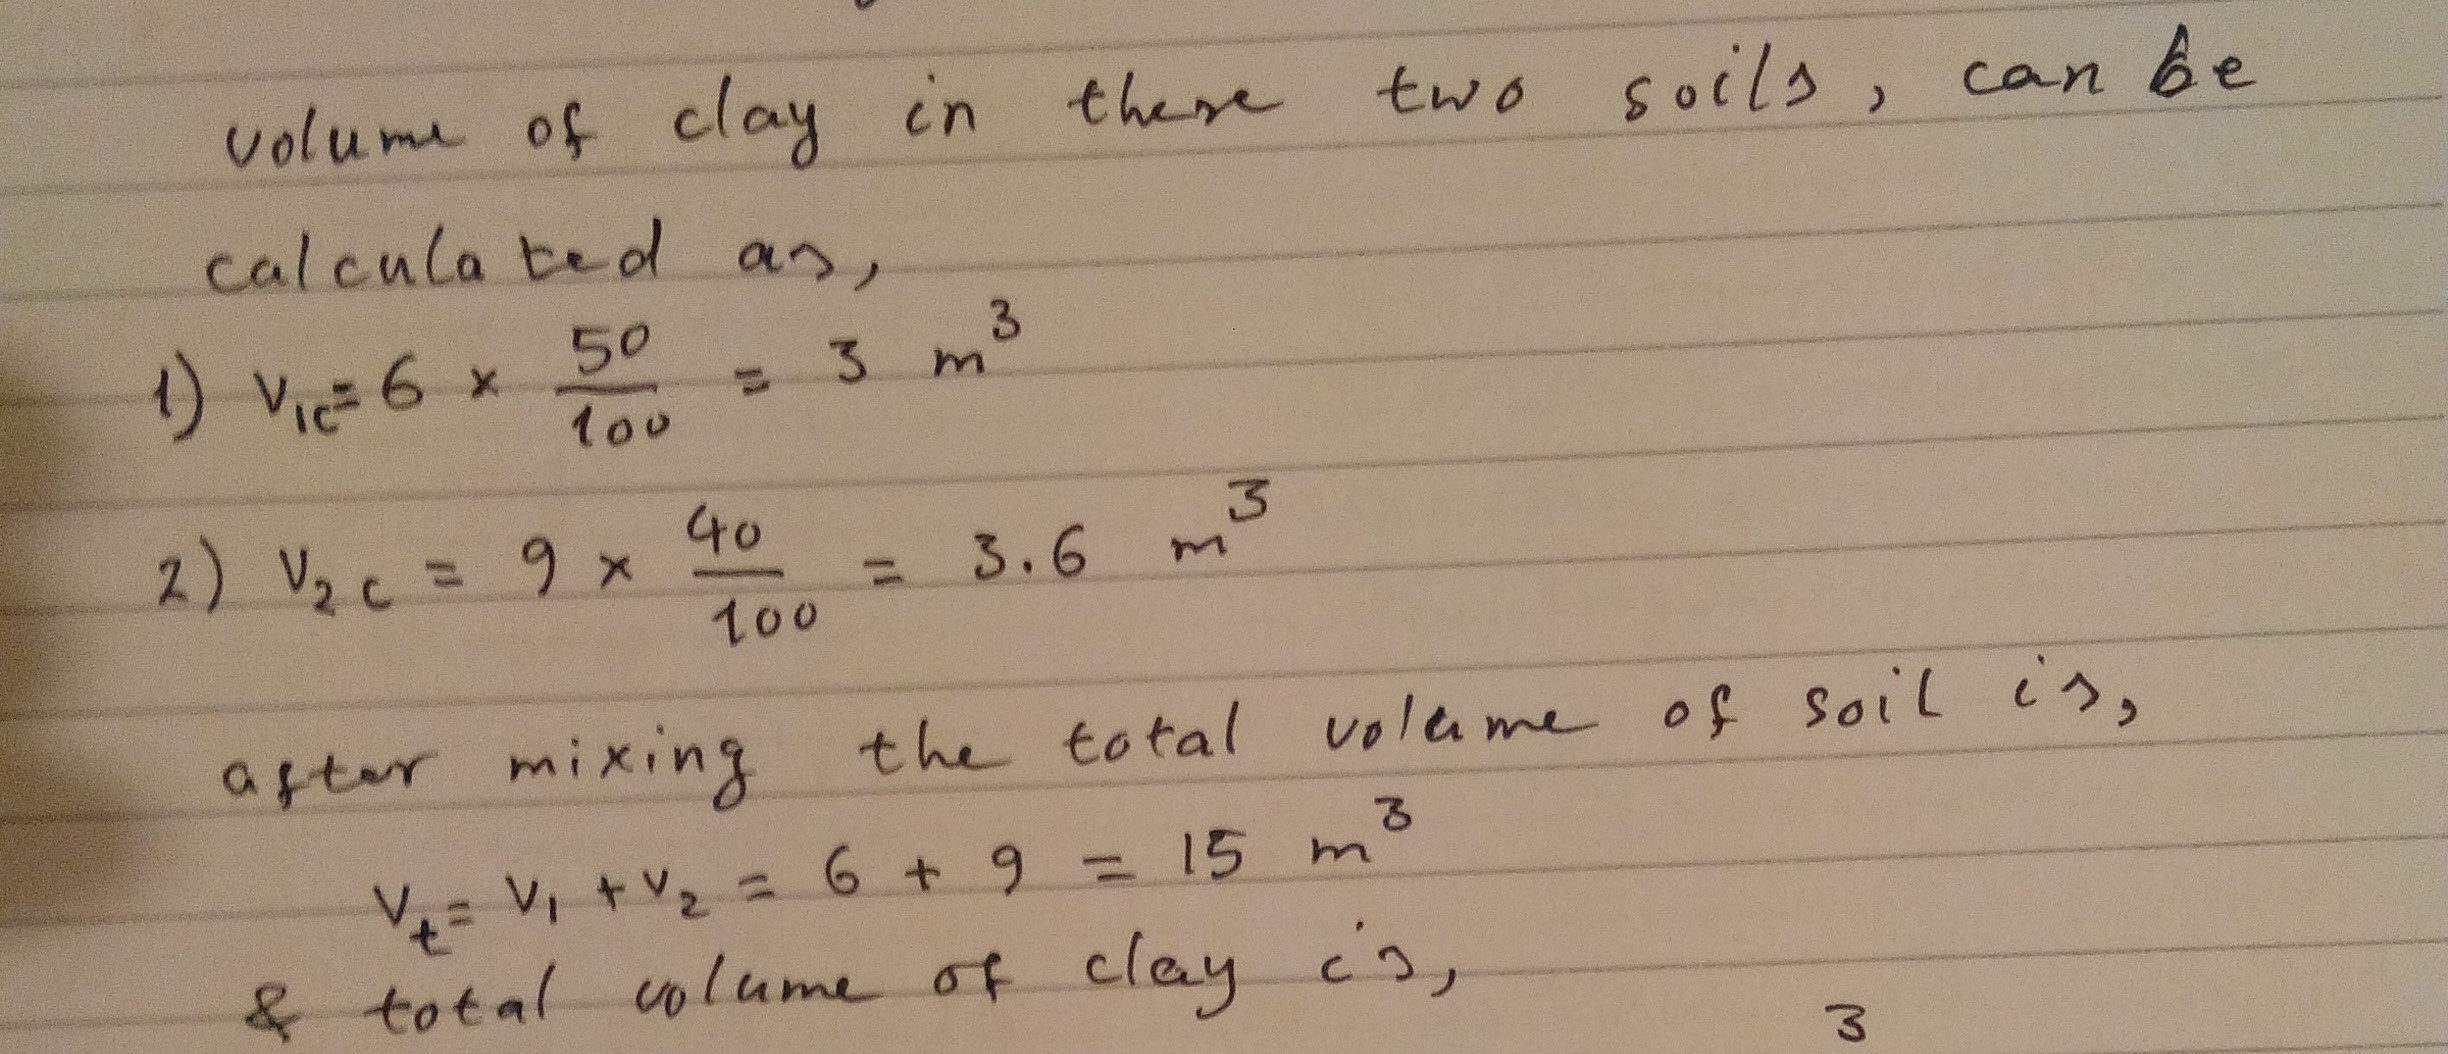 volume of clay in these two soils, can be
calculated as,
1) V₁c = 6 × 50/100 = 3 m³
2) V₂c = 9 × 40/100 = 3.6 m³
after mixing the total volume of soil is,
Vt = V₁ + V₂ = 6 + 9 = 15 m³
& total volume of clay is,
3